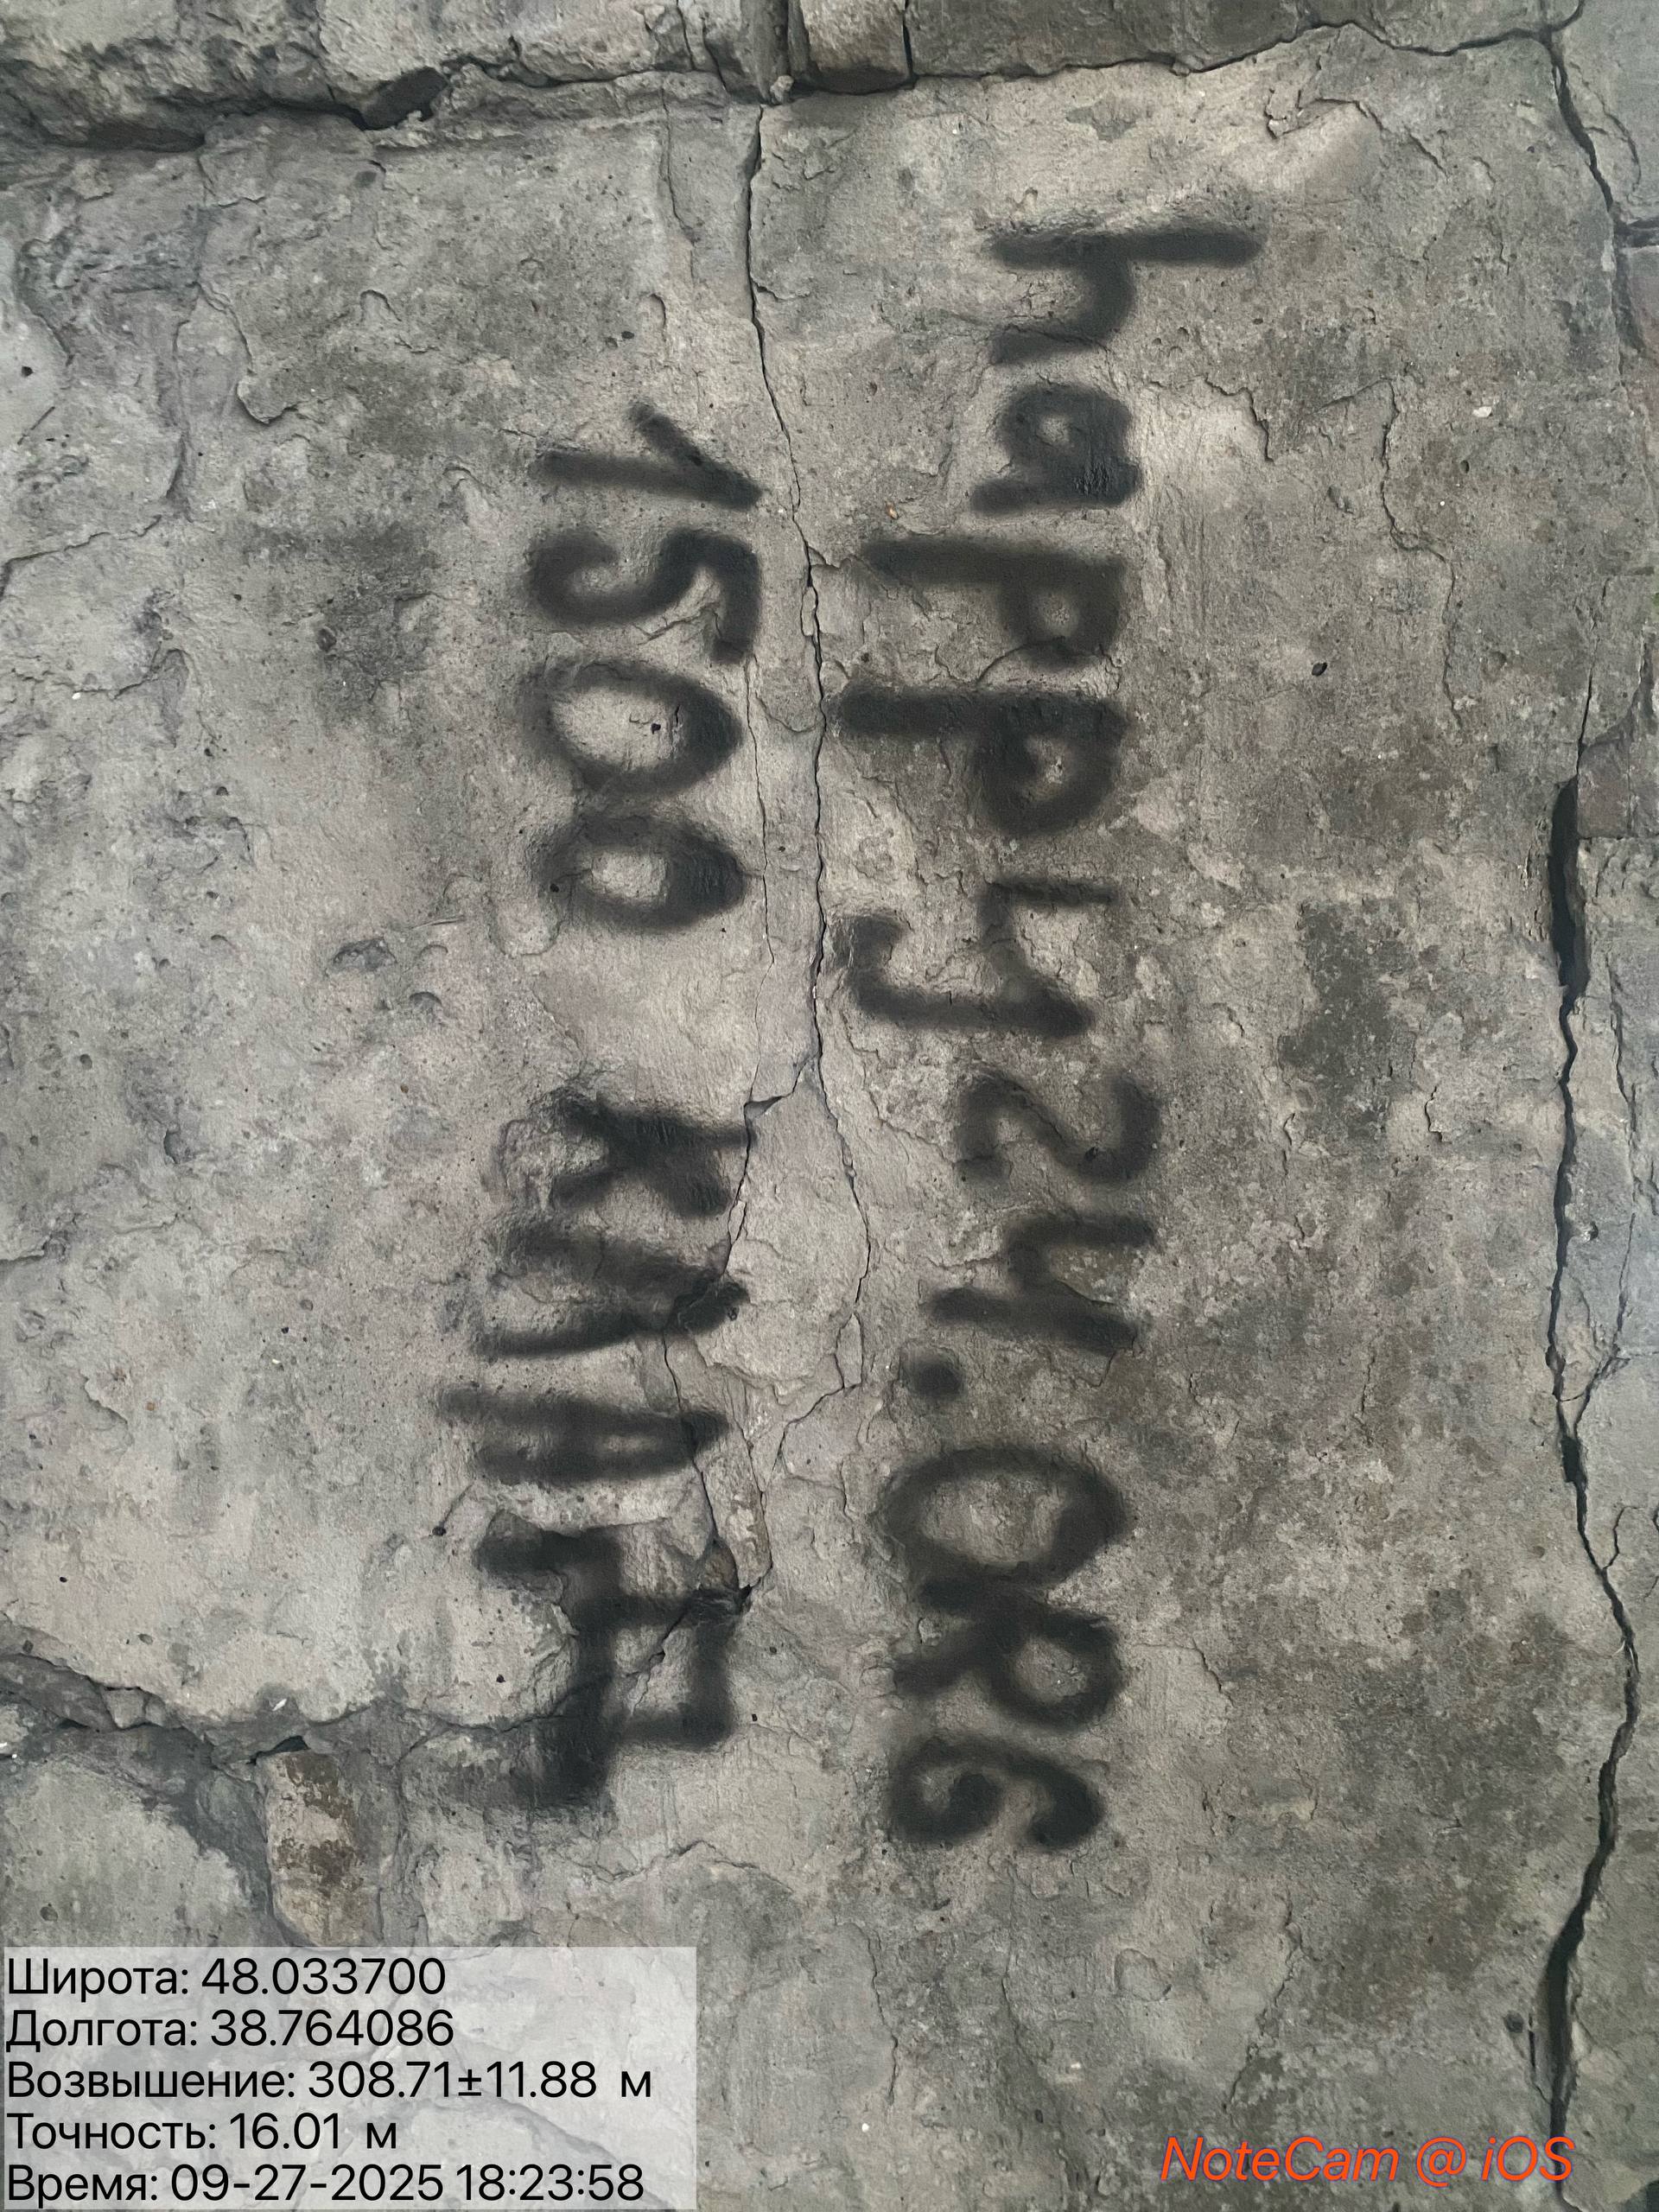 happy24.ORG
1500 КЛАД
Широта: 48.033700
Долгота: 38.764086
Возвышение: 308.71±11.88 м
Точность: 16.01 м
Время: 09-27-2025 18:23:58
NoteCam @ iOS